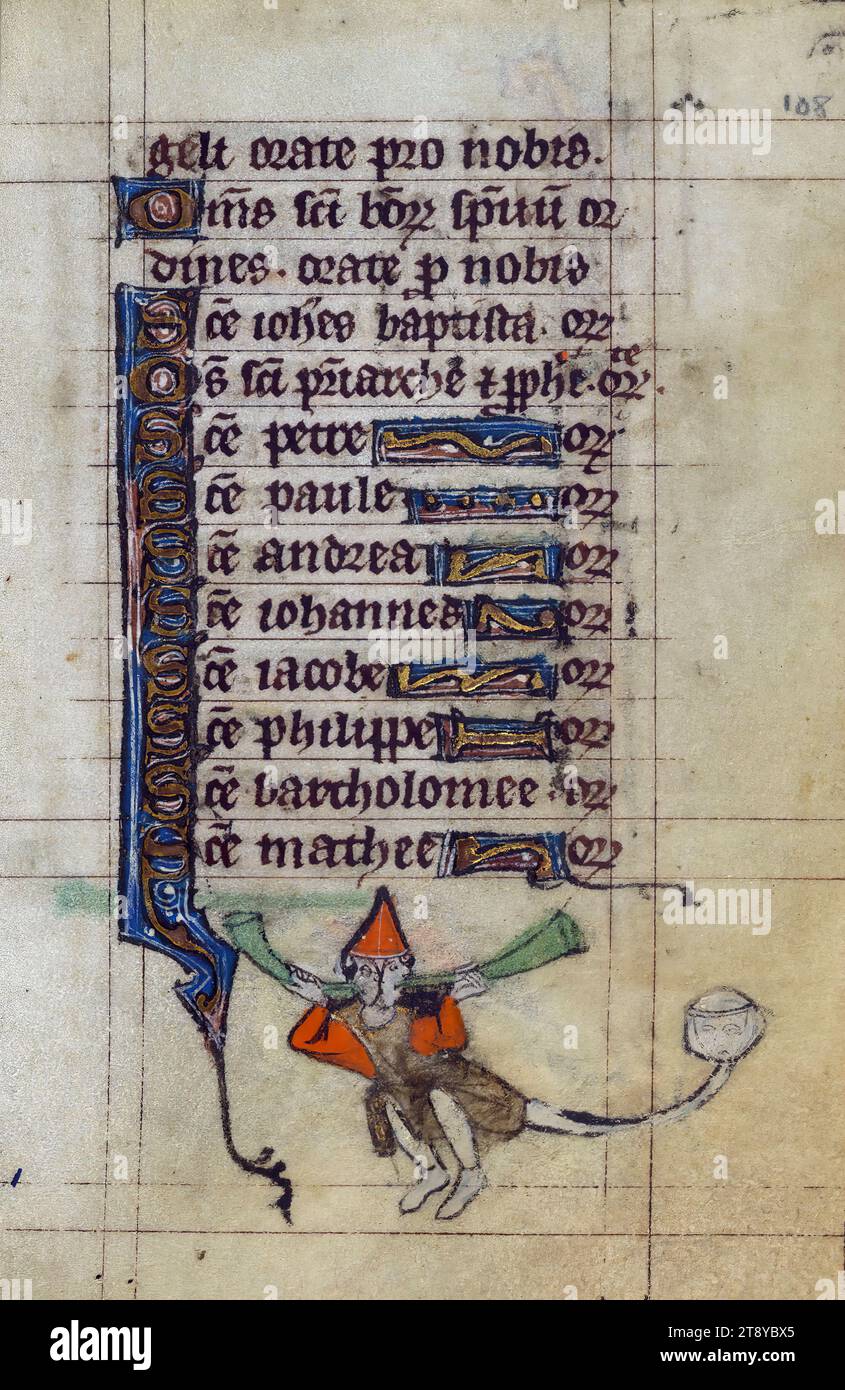 108
geli orate pro nobis.
Om̄s sc̄i bōꝝ sp̄uū or
dines. orate ꝓ nobis
Sc̄e ioh̄es baptista. orꝝ
Os̄ sc̄i pr̄iarche ⁊ ꝓph̄e. orꝝ te.
Sc̄e petre orꝝ
Sc̄e paule orꝝ
Sc̄e andrea orꝝ
Sc̄e iohannes orꝝ
Sc̄e iacobe orꝝ
Sc̄e philippe orꝝ
Sc̄e bartholomee. orꝝ
Sc̄e mathee orꝝ
alamy
Image ID: 2T8YBX5
www.alamy.com